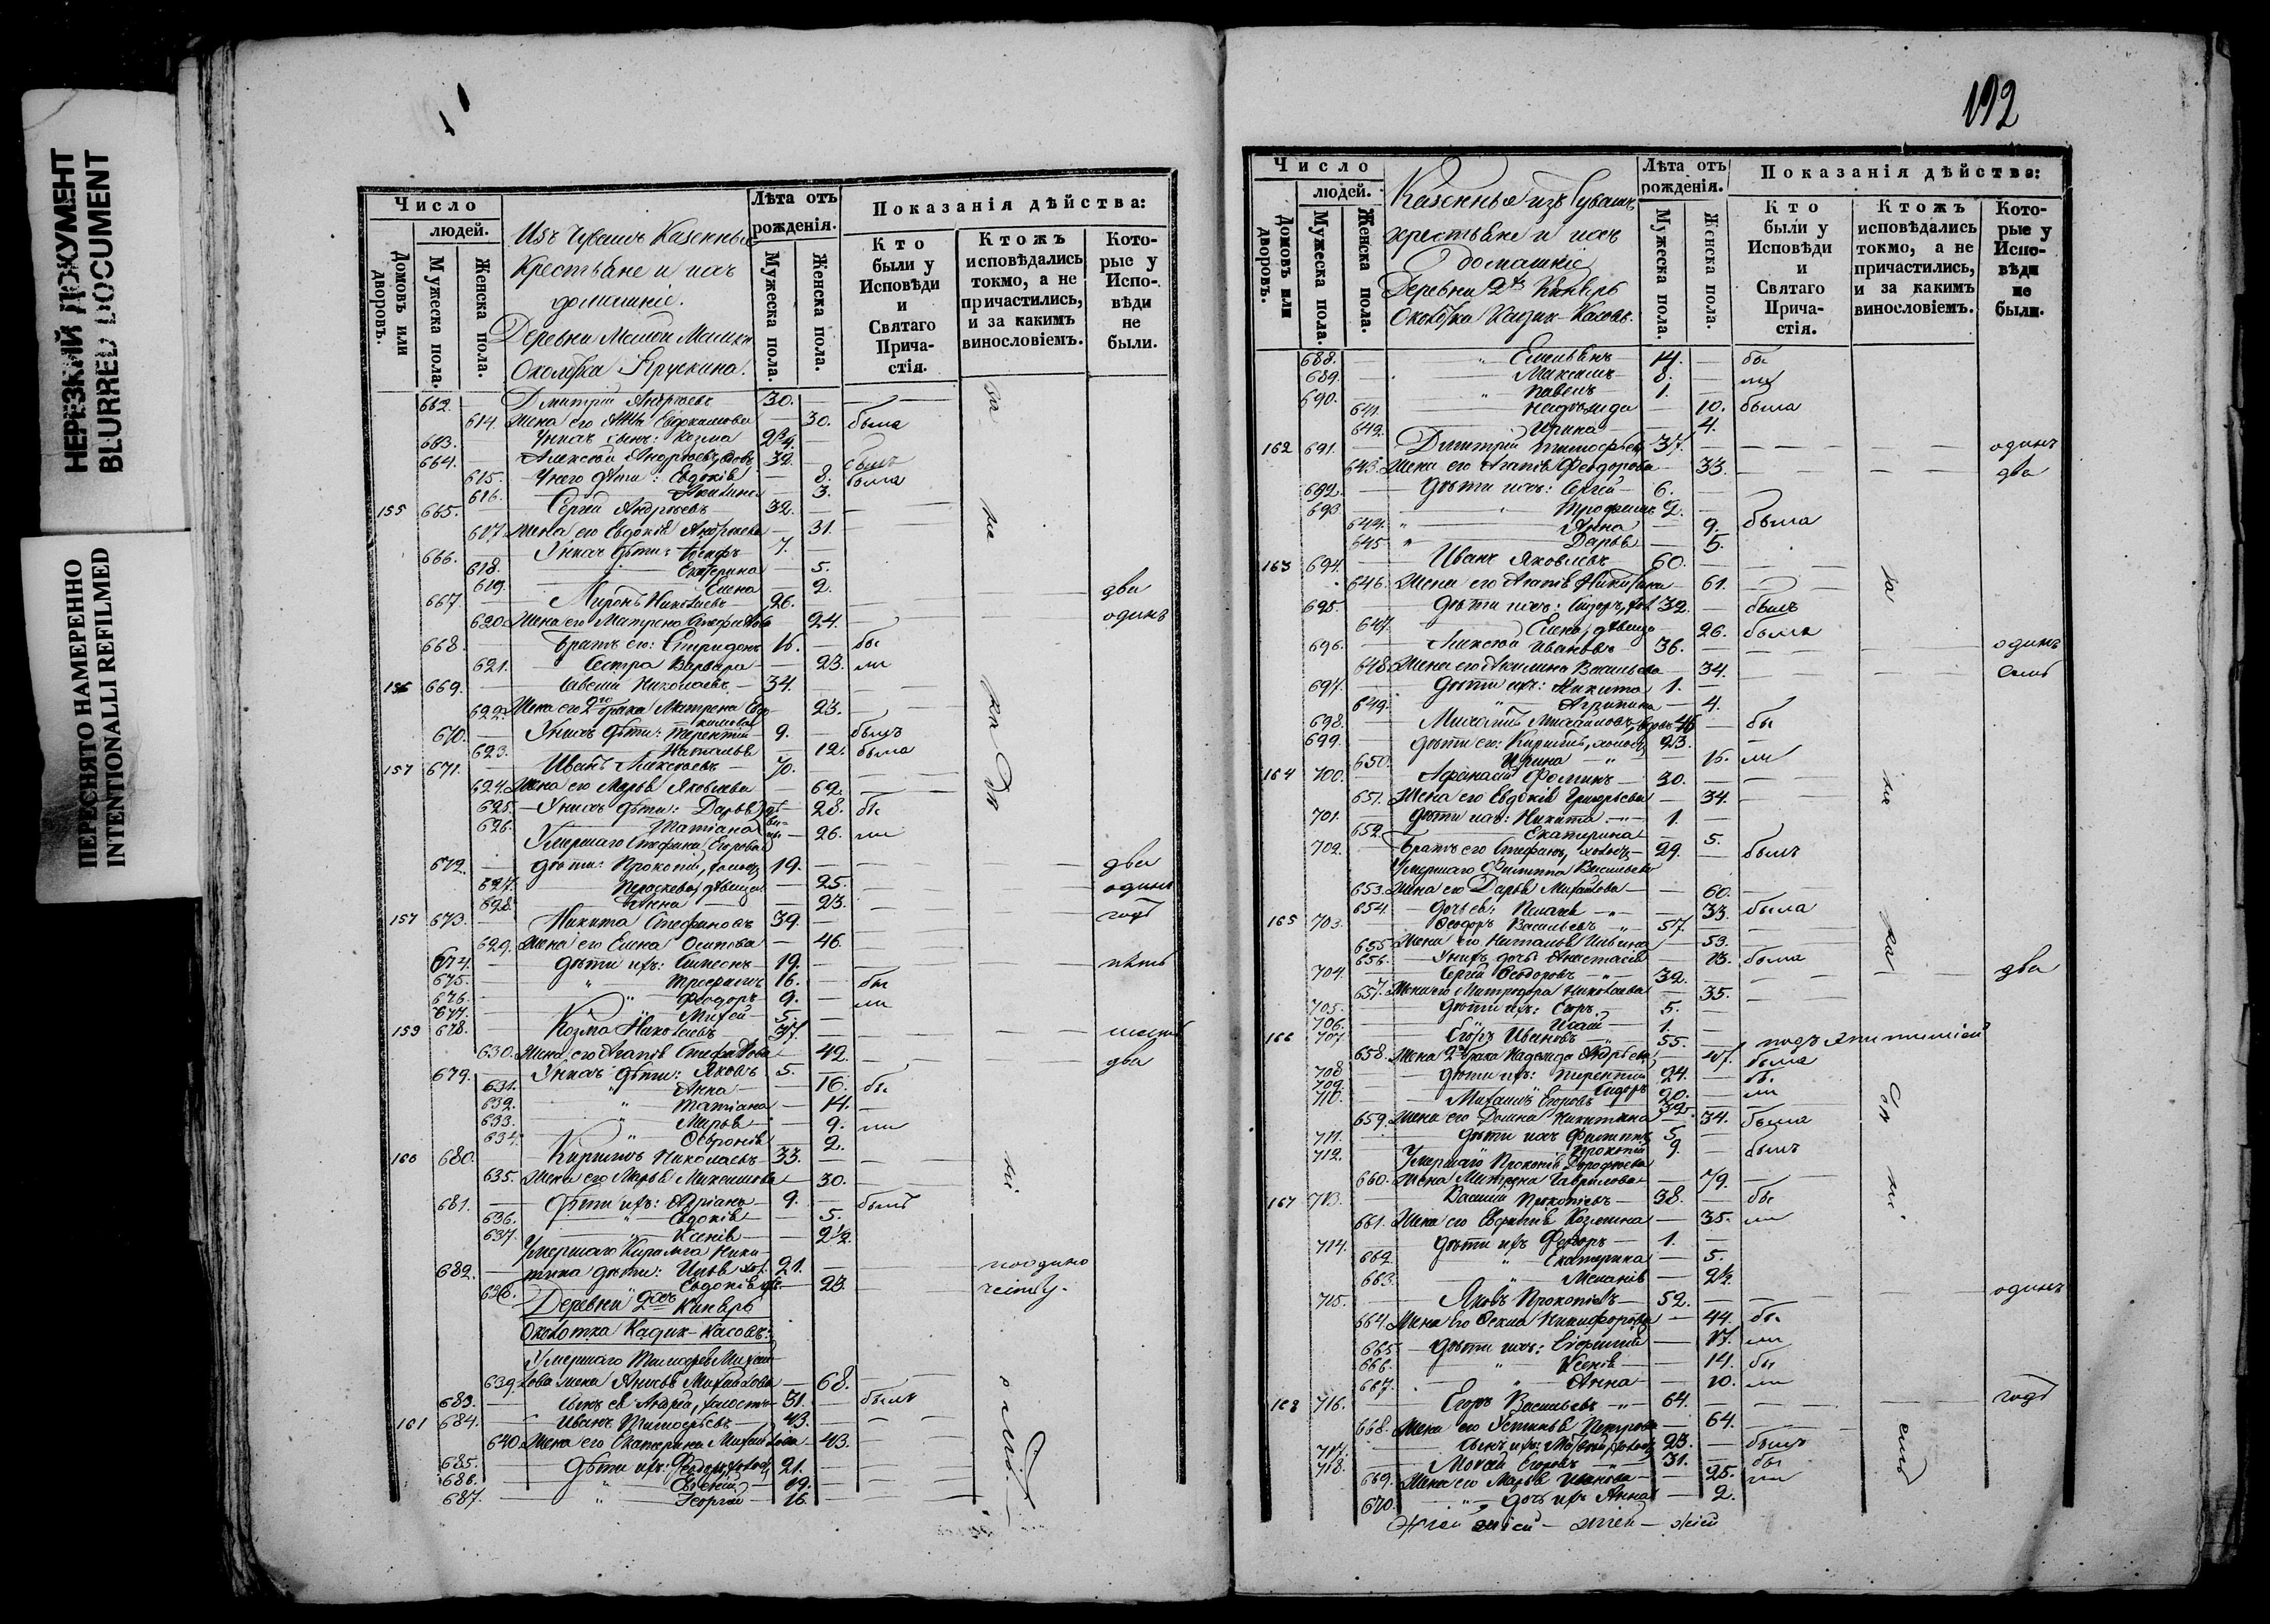 НЕРЕЗКИЙ ДОКУМЕНТ
BLURRED DOCUMENT
ПЕРЕСНЯТО НАМЕРЕННО
INTENTIONALLI REFILMED
Число
людей.
Домовъ или дворовъ.
Мужеска пола.
Женска пола.
Изъ Чувашъ Казенные
Крестьяне и ихъ
домашніе.
Деревни
Околотка
Лѣта отъ рожденія.
Мужеска пола.
Женска пола.
Показанія дѣйства:
Кто были у Исповѣди и Святаго Прича-стія.
Ктожъ исповѣдались токмо, а не причастились, и за какимъ винословіемъ.
Кото-рые у Испо-вѣди не были.
662. Дмитрій Андреевъ 30.
614. Жена его Евдокимова 30. была
663. У нихъ сынъ: Козма
664. Алексѣй Андреевъ, вдовъ 32. былъ
615. У него дѣти: Евдокія 8. была
616. Акилина 3.
155 665. Сергій Андреевъ 32.
617. Жена его Евдокія Андреева 31.
666. У нихъ дѣти: 7.
618. Екатерина 5.
619. Елена 2.
667. Миронъ Николаевъ 26. два
620. Жена его Матрена Стефанова 24. одинъ
668. Братъ его: Спиридонъ 16. бы
621. Сестра Варвара 23. ли
156 669. Савелій Николаевъ 34.
622. Жена его 2го брака Матрена Евдо-кимова 23.
670. У нихъ дѣти: Терентій 9. былъ
623. Наталья 12. была
157 671. Иванъ Алексѣевъ 70.
624. Жена его Марья Яковлева 62.
625. У нихъ дѣти: Дарья 28. бы
626. Татіана 26. ли
Умершаго Стефана Егорова
672. дѣти: Прокопій, холостъ 19. два
627. Параскева, дѣвица 25. одинъ
628. Анна 23.
157 673. Никита Стефановъ 39. годъ
629. Жена его Елена Осипова 46.
674. дѣти ихъ: Симеонъ 19. пять
675. Трофимъ 16. бы
676. Ѳеодоръ 9. ли
677. Михей 5.
159 678. Козма Николаевъ 37. шесть
630. Жена его Агапія Стефанова 42. два
679. У нихъ дѣти: Яковъ 5.
631. Анна 16. бы
632. Татіана 14.
633. Марья 9. ли
634. Ѳевронія 2.
160 680. Кириллъ Николаевъ 33.
635. Жена его Марья Максимова 30.
681. Дѣти ихъ: Адріанъ 9. былъ
636. Евдокія 5.
637. Ксенія 2½.
Умершаго Кирилла Ники-
682. тина дѣти: Илья хол. 21. поодино
638. Евдокія 23. честву.
Деревни 2хъ Кинеръ
Околотка Кадик-Касовъ:
Умершаго Тимофея Михай-
639. лова жена Михайлова 68.
683. Сынъ ея Андрей, холостъ 31. былъ
161 684. Иванъ Тимофеевъ 43.
640. Жена его Екатерина Михайлова 43.
685. Дѣти ихъ: Ѳеодоръ, холост. 21.
686. Евсевій 19.
687. Георгій 16.
за
мало
192
Число
людей.
Домовъ или дворовъ.
Мужеска пола.
Женска пола.
Казенные изъ Чувашъ
крестьяне и ихъ
домашніе
Деревни 2хъ Кинеръ
Околотка Кадик-Касовъ.
Лѣта отъ рожденія.
Мужеска пола.
Женска пола.
Показанія дѣйства:
Кто были у Исповѣди и Святаго Прича-стія.
Ктожъ исповѣдались токмо, а не причастились, и за какимъ винословіемъ.
Кото-рые у Испо-вѣди не были.
688. Емельянъ 14. бы
689. Максимъ 8. ли
690. Павелъ 1.
641. Надежда 10. была
642. Ирина 4.
162 691. Димитрій Тимофеевъ 37. одинъ
643. Жена его Агапія Ѳеодорова 33. два
692. Дѣти ихъ: Сергей 6.
693. Трофимъ 2.
644. Анна 9. была
645. Дарья 5.
163 694. Иванъ Яковлевъ 60.
646. Жена его Агапія Никитина 61.
695. Дѣти ихъ: Сидоръ, хол. 32. былъ
647. Елена, дѣвица 26. была
696. Алексѣй Ивановъ 36. одинъ
648. Жена его Акилина Васильева 34. семь
697. Дѣти ихъ: Никита 1.
649. Агрипина 4.
698. Михаилъ Михайловъ, вдовъ 46 бы
699. дѣти его: Кириллъ, холост. 23.
650. Ирина 16. ли
164 700. Афанасій Фоминъ 30.
651. Жена его Евдокія Григорьева 34.
701. Дѣти ихъ: Никита 1.
652. Екатерина 5.
702. Братъ его Стефанъ, холост. 29. былъ
Умершаго Филиппа Васильева
653. Жена его Дарья Михайлова 60.
654. Дочь ея: Пелагея 33. была
165 703. Ѳеодоръ Васильевъ 57.
655. Жена его Наталья Ильина 53.
656. У нихъ дочь Анастасія 13. была
704. Сергій Ѳеодоровъ 32. два
657. Жена его Митродора Николаева 35.
705. Дѣти ихъ: Егоръ 5.
706. Исай 1.
166 707. Егоръ Ивановъ 55. подъ Эпитиміей
658. Жена 2го брака Надежда Андреева 47. была
708. дѣти ихъ: Терентій 24. бы
709. Сидоръ 20. ли
710. Михаилъ Егоровъ 32.
659. Жена его Домна Никитина 34. была
711. Дѣти ихъ Филиппъ 5.
712. Прокопій 9. былъ
Умершаго Прокопія Дорофеева
660. Жена Матрена Гаврилова 79.
167 713. Василій Прокопіевъ 38. бы
661. Жена его Евфимія Козмина 35. ли
714. Дѣти ихъ Ѳедоръ 1.
662. Екатерина 5.
663. Меланія 2½.
715. Яковъ Прокопіевъ 52. одинъ
664. Жена его Ѳекла Никифорова 44. бы
665. Дѣти ихъ: 17. ли
666. Ксенія 14. бы
667. Анна 10. ли
168 716. Егоръ Васильевъ 64. годъ
668. Жена его Устинья Петрова 64.
717. Сынъ ихъ: холост. 23. былъ
718. Моисей Егоровъ 31. бы
669. Жена его Марья Иванова 25. ли
670. дочь ихъ Анна 2.